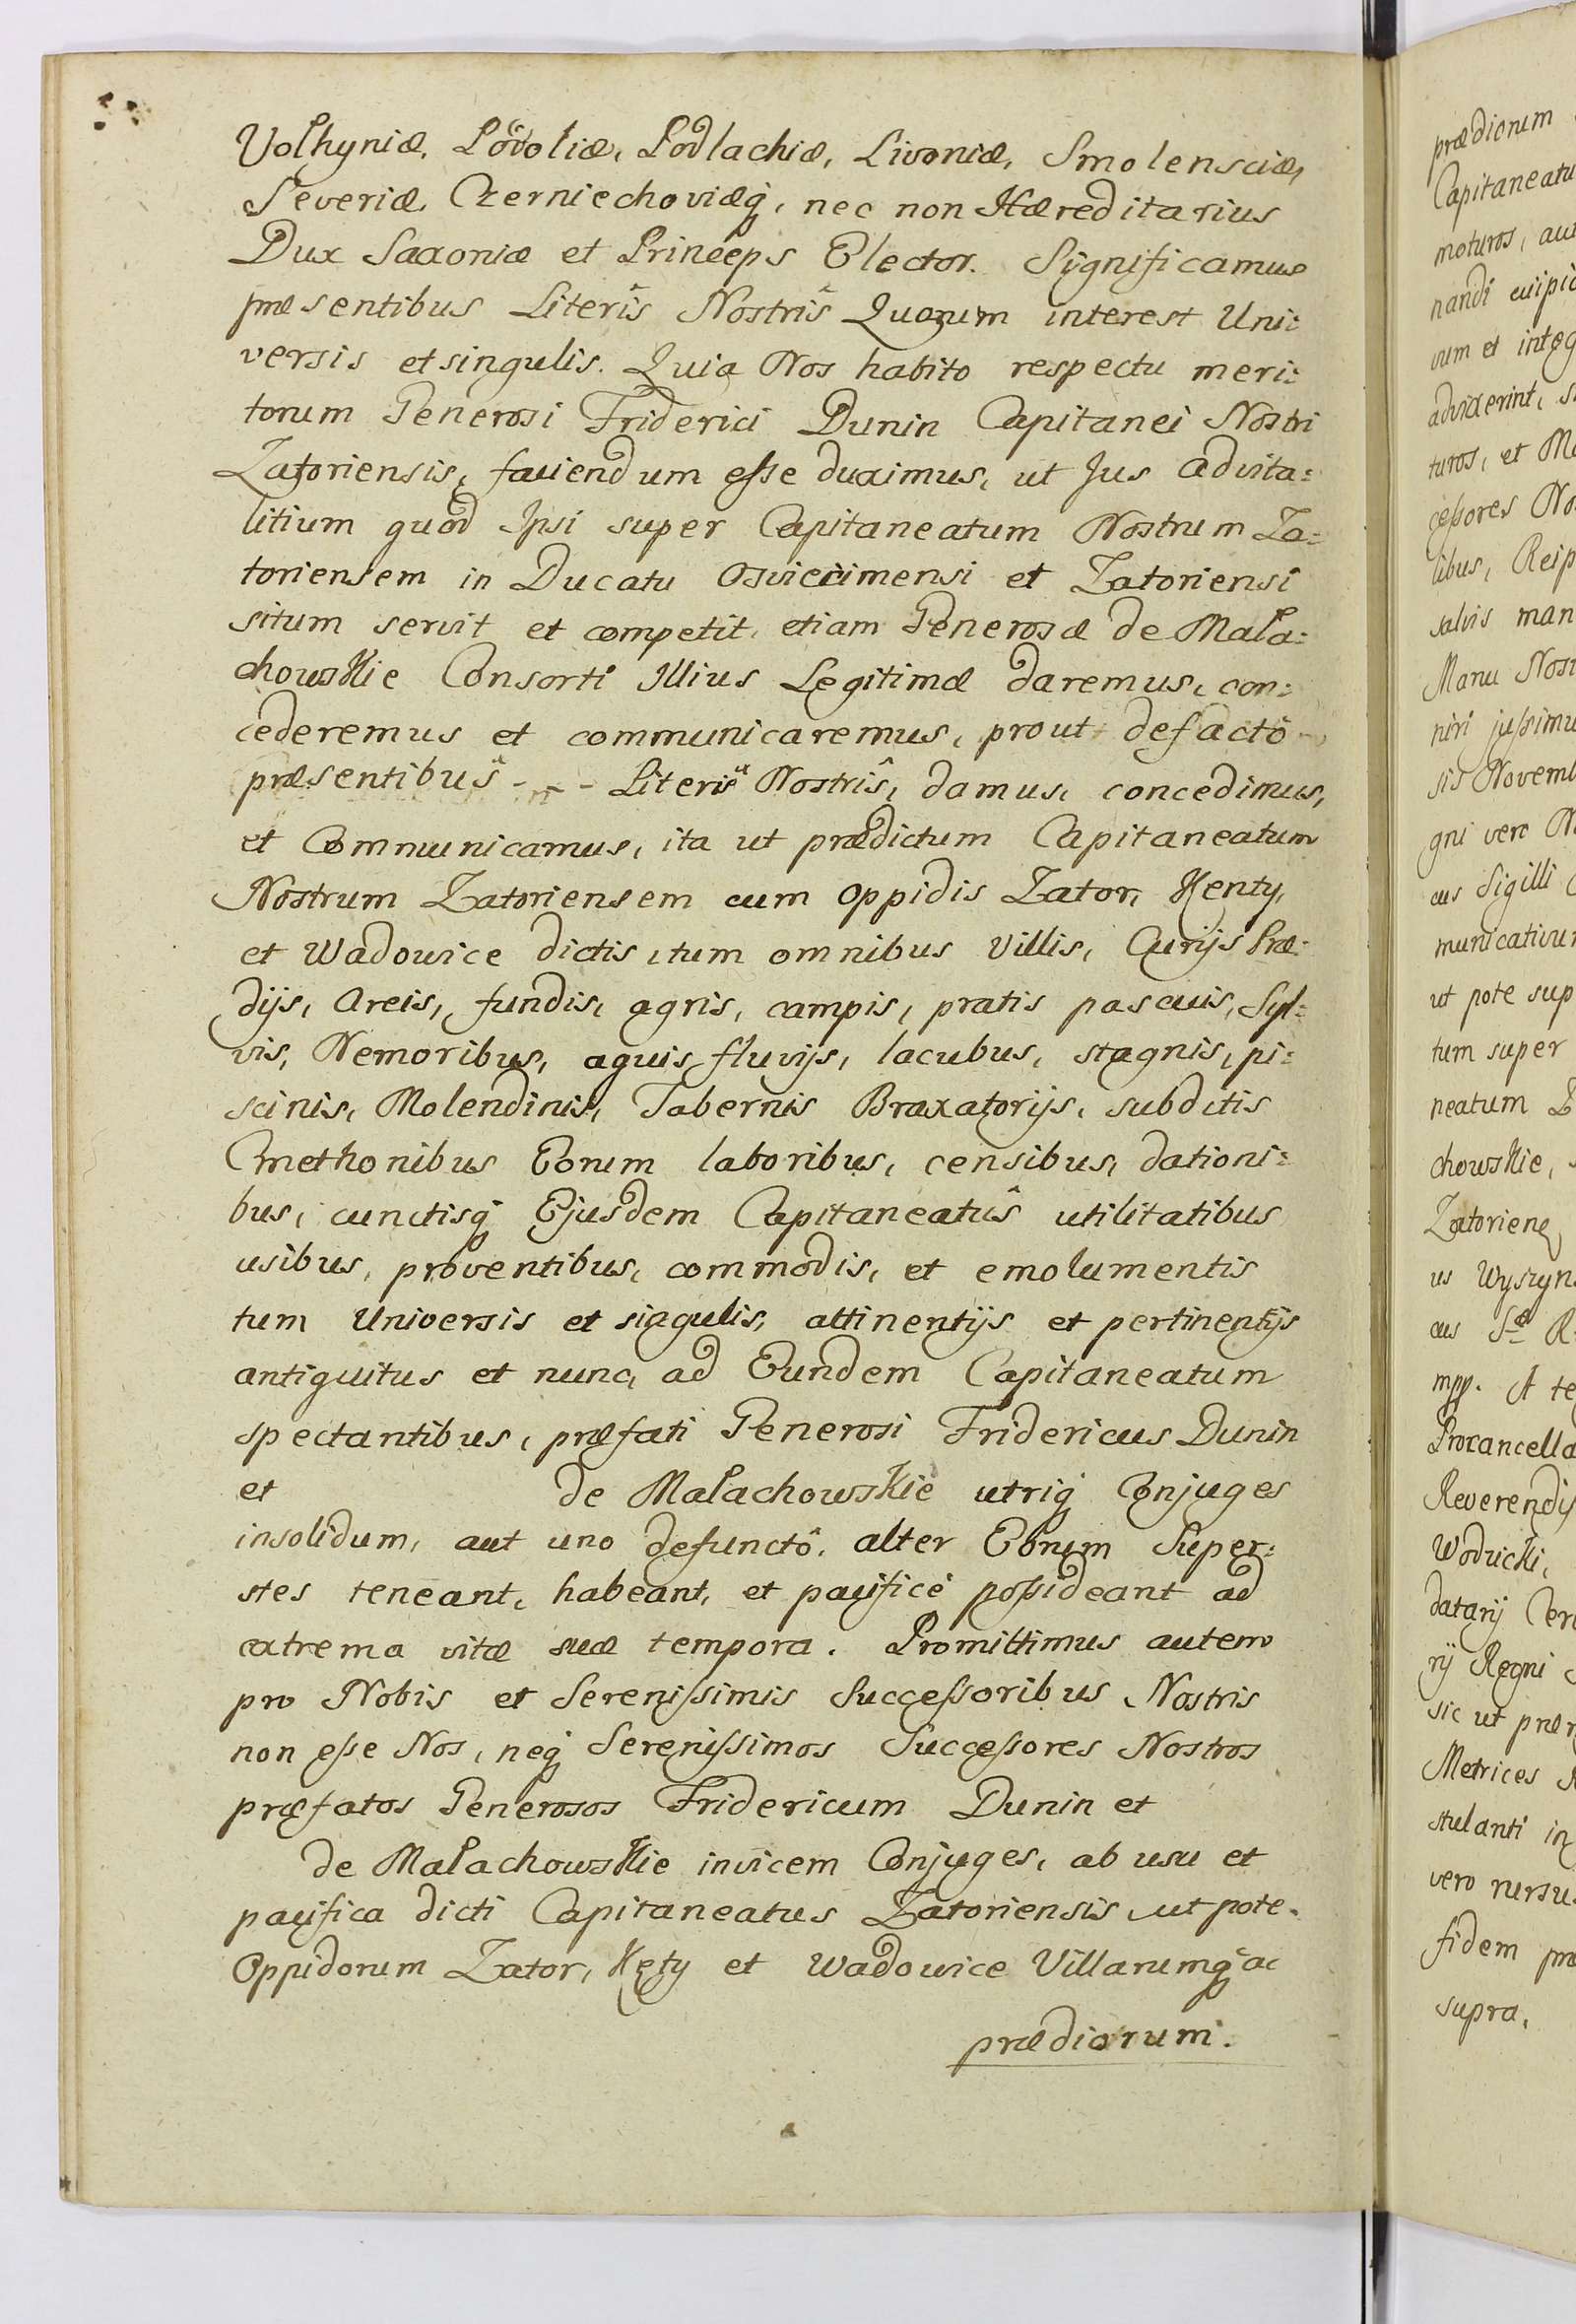 Volhyniæ, Podoliæ, Podlachiæ, Livoniæ, Smolensciæ,
Severiæ, Czerniechoviæq, nec non Hæreditarius
Dux Saxoniæ et Princeps Elector. Significamus
præsentibus Literîs Nostrîs Quorum interest Uni:
versis et singulis. Quia Nos habito respectu meri:
torum Generosi Friderici Dunin Capitanei Nostri
Zatoriensis, faciendum esse duximus, ut Jus advita:
litium quod Ipsi super Capitaneatum Nostrum Za:
toriensem in Ducatu Osviecimensi et Zatoriensi
situm servit et competit, etiam Generosæ de Mała:
chowskie Consorti Illius Legitimæ daremus, con:
cederemus et communicaremus, prout defactô
præsentibus - - - Literis Nostrîs, damus, concedimus,
et Communicamus, ita ut prædictum Capitaneatum
Nostrum Zatoriensem cum Oppidis Zator, Kenty,
et Wadowice dictis, tum omnibus Villis, Curijs Præ:
dijs, Areis, fundis, agris, campis, pratis pascuis, Syl:
vis, Nemoribus, aquis fluvijs, lacubus, stagnis, pi:
scinis, Molendinis, Tabernis Braxatorijs, subditis
Cmethonibus Eorum laboribus, censibus, dationi:
bus, cunctisq Ejusdem Capitaneatûs utilitatibus
usibus, proventibus, commodis, et emolumentis
tum Universis et singulis, attinentijs et pertinentijs
antiquitus et nunc, ad Eundem Capitaneatum
spectantibus, præfati Generosi Fridericus Dunin
et de Małachowskie utriq Conjuges
insolidum, aut uno defunctô, alter Eorum Super:
stes teneant, habeant, et pacificè possideant ad
extrema vitæ suæ tempora. Promittimus autem
pro Nobis et Serenissimis Successoribus Nostris
non esse Nos, neq Serenissimos Successores Nostros
præfatos Generosos Fridericum Dunin et
de Małachowskie invicem Conjuges, ab usu et
pacifica dicti Capitaneatus Zatoriensis, ut pote
Oppidorum Zator, Kęty et Wadowice Villarumq ac
prædiorum.
prædiorum
Capitaneatu
moturos, au
nandi cuipia
vum et integ
advixerint, s
turos, et Ma
cessores Nos
libus, Reip
salvis man
Manu Nost
niri jussimu
sis Novemb
gni vero
cus Sigilli
municativu
ut pote sup
tum super
neatum Z
chowskie,
Zatorien
us Wyszyn
cus R
mpp. A te
Procancella
Reverendis
Wodzicki,
datarij Cer
rij Regni
sic ut præ
Metrices
stulanti in
vero rursus
fidem præ
supra.